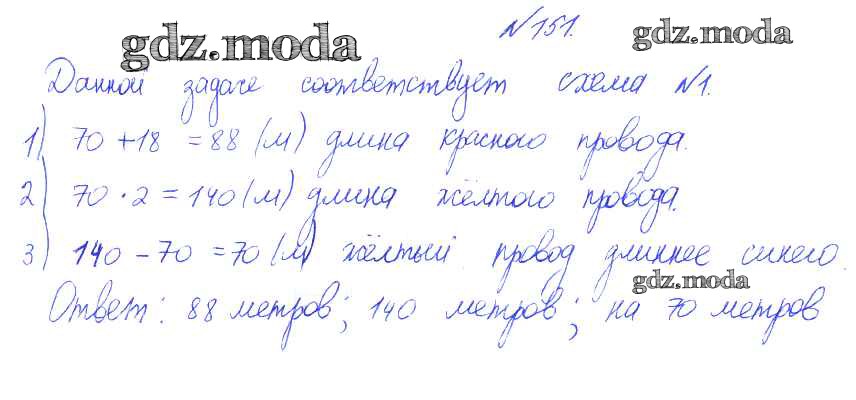 gdz.moda №151. gdz.moda
Данной задаче соответствует схема №1.
1) 70 + 18 = 88 (м) длина красного провода.
2) 70 · 2 = 140 (м) длина жёлтого провода.
3) 140 - 70 = 70 (м) жёлтый провод длиннее синего.
gdz.moda
Ответ: 88 метров; 140 метров; на 70 метров
gdz.moda